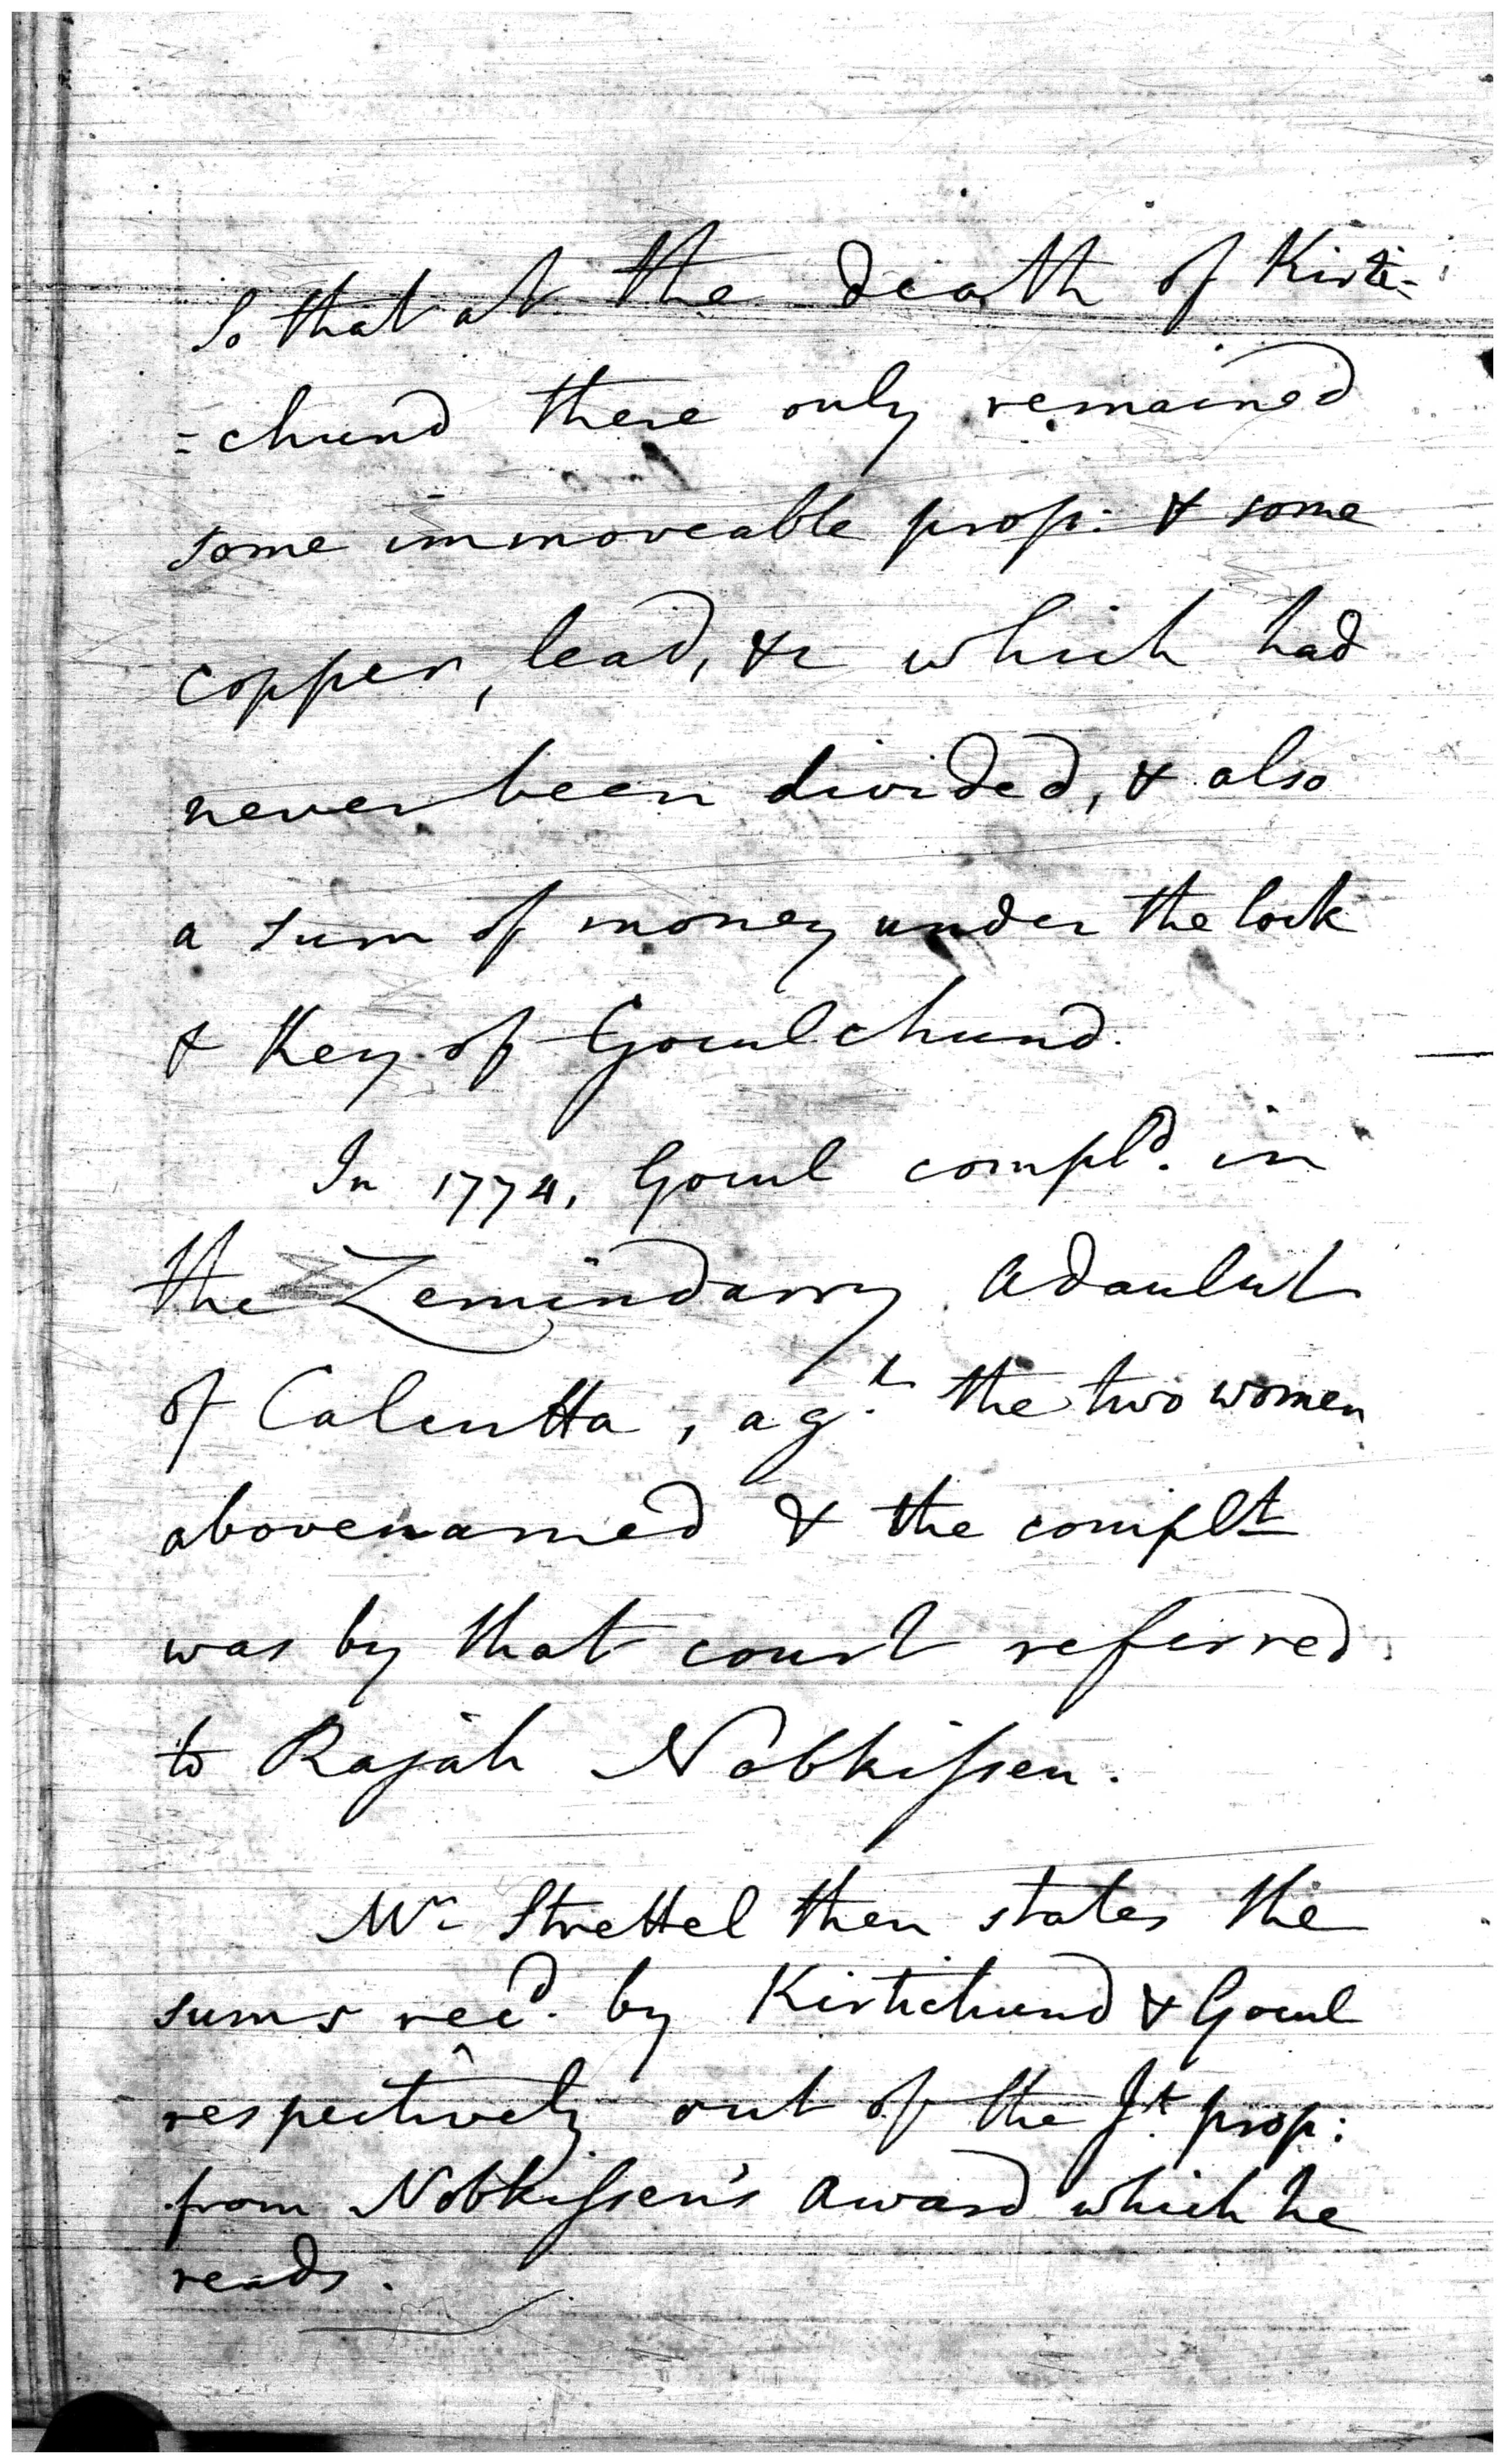 So that at the death of Kirti=
=chund there only remained
some immoveable prop: & some
copper, lead, &c which had
never been divided, & also
a sum of money under the lock
& Key of Goculchund.
In 1774, Gocul compld. in
the Zemindarry Adaulut
of Calcutta, agt. the two women
abovenamed & the complt
was by that court referred
to Rajah Nobkissen.
Mr Strettel then states the
sums recd. by Kirtichund & Gocul
respectively out of the Jt. prop:
from Nobkissen's award which he
reads.